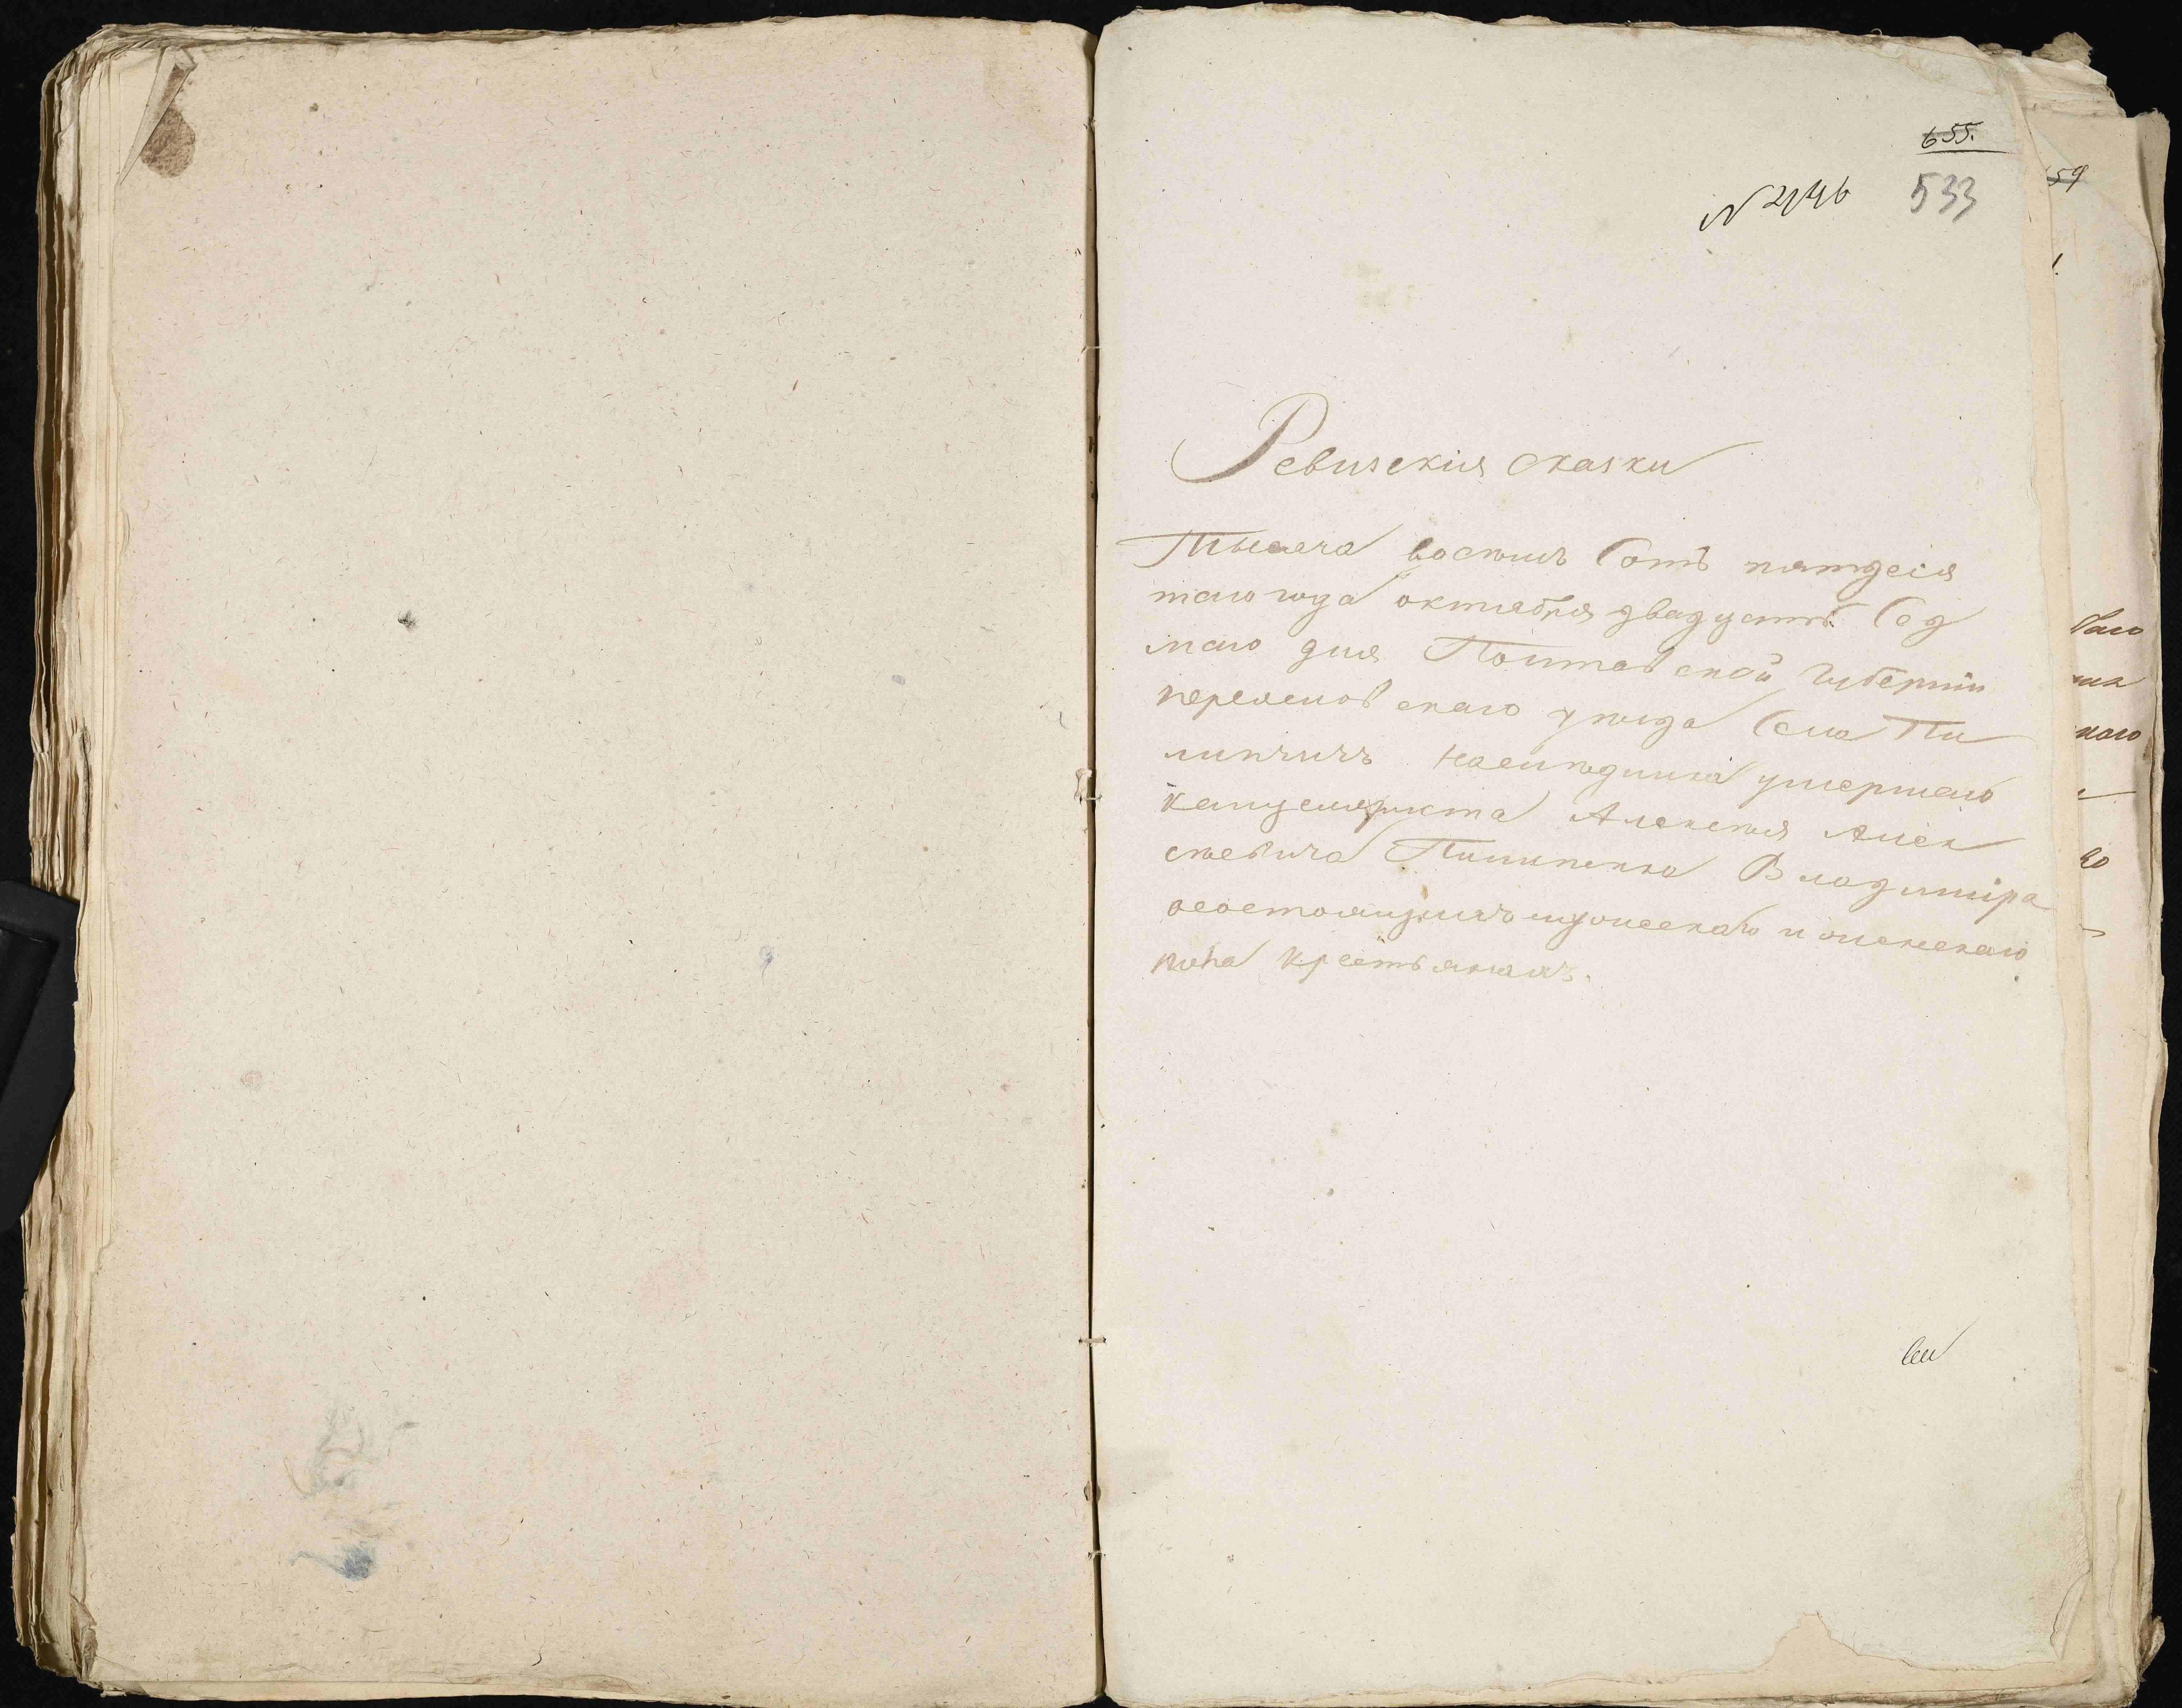 655.
N 2146 533
Ревизскія сказки
Тысеча восемь сотъ пятдеся
таго года октября двадцать сед
маго дня Полтавской губерніи
переяславскаго уѣзда села Пи
липчичъ наслѣдника умершаго
канцеляриста Алексѣя Алек
сѣевича Пилипенка Владиміра
осостоящихъ мужескаго и женскаго
пола крестьянахъ.
59